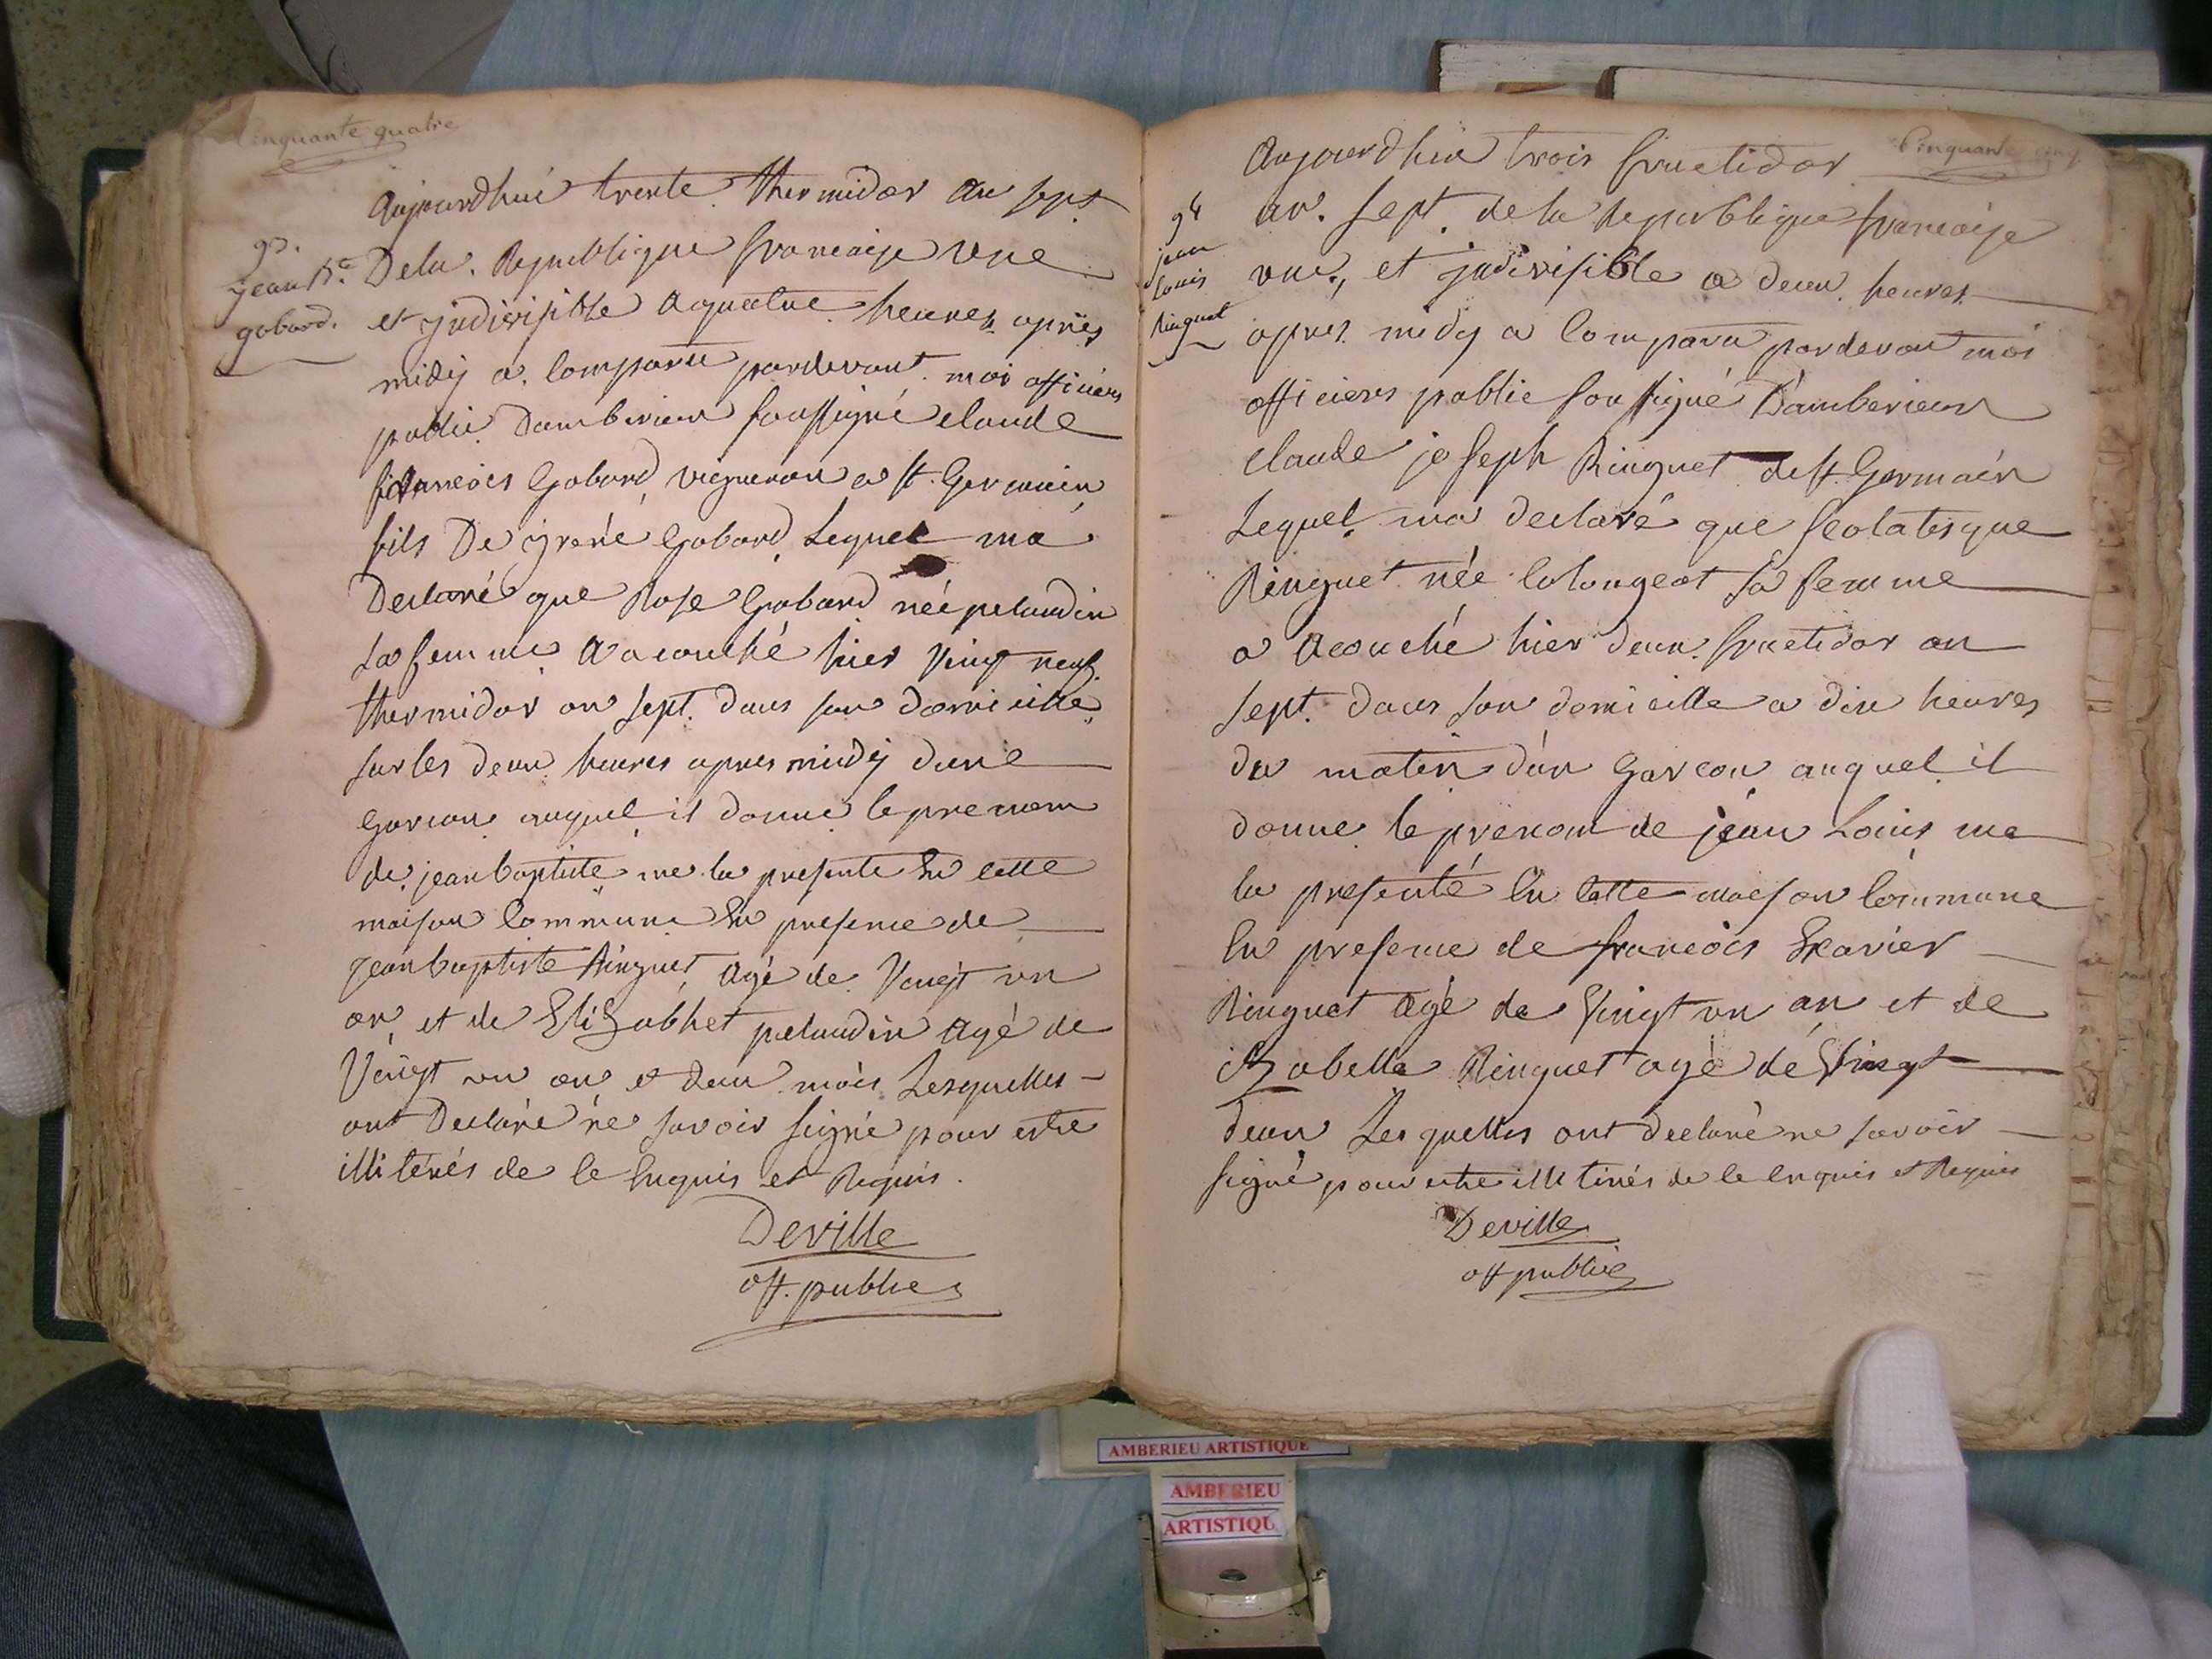 Cinquante quatre
93.
jean Bte
gobard.
Aujourdhui trente thermidor an sept
Dela Republique francaise une
et jndivisible a quatre heures après
midy a comparu pardevant moi officiers
public Damberieux soussigné claude
francois Gobard vigneron a st. Germain
fils De jrené Gobard Lequel ma
Declaré que Rose Gobard née pelaudin
sa femme a acouché hier vingt neuf
thermidor an sept dans son domicille
sur les deux heures apres midy dune
Garcon auquel il donne le prenom
de jean baptiste me la presente En cette
maison Commune En presence de
jean baptiste Ringuet Agé de Vingt un
an et de Elizabhet pelaudin Agé de
Vingt un an et deux mois Lesquelles
ont Declaré ne savoir signé pour estre
illiterés de le Enquis et Requis.
Deville
off. public
Cinquante cinq
94
jean
Louis
Ringuet
Aujourdhui trois fructidor
an sept de la Republique francaise
une, et jndivisible a deux heures
apres midy a Comparu pardevant moi
officiers public soussigné Damberieux
claude joseph Ringuet de st. Germain
Lequel ma declaré que scolatisque
Ringuet née Colongeat sa femme
a Acouché hier deux fructidor an
sept dans son domicille a dix heures
du matin d'un Garcon auquel il
donne le prenom de jean Louis me
la presenté En cette maison Commune
En presence de francois Exavier
Ringuet agé de Vingt un an et de
izabelle Ringuet agé de Vingt
deux Lesquelles ont declaré ne savoir
signé pour estre illiterés de le Enquis et Requis
Deville
off public
AMBERIEU ARTISTIQUE
AMBERIEU
ARTISTIQU